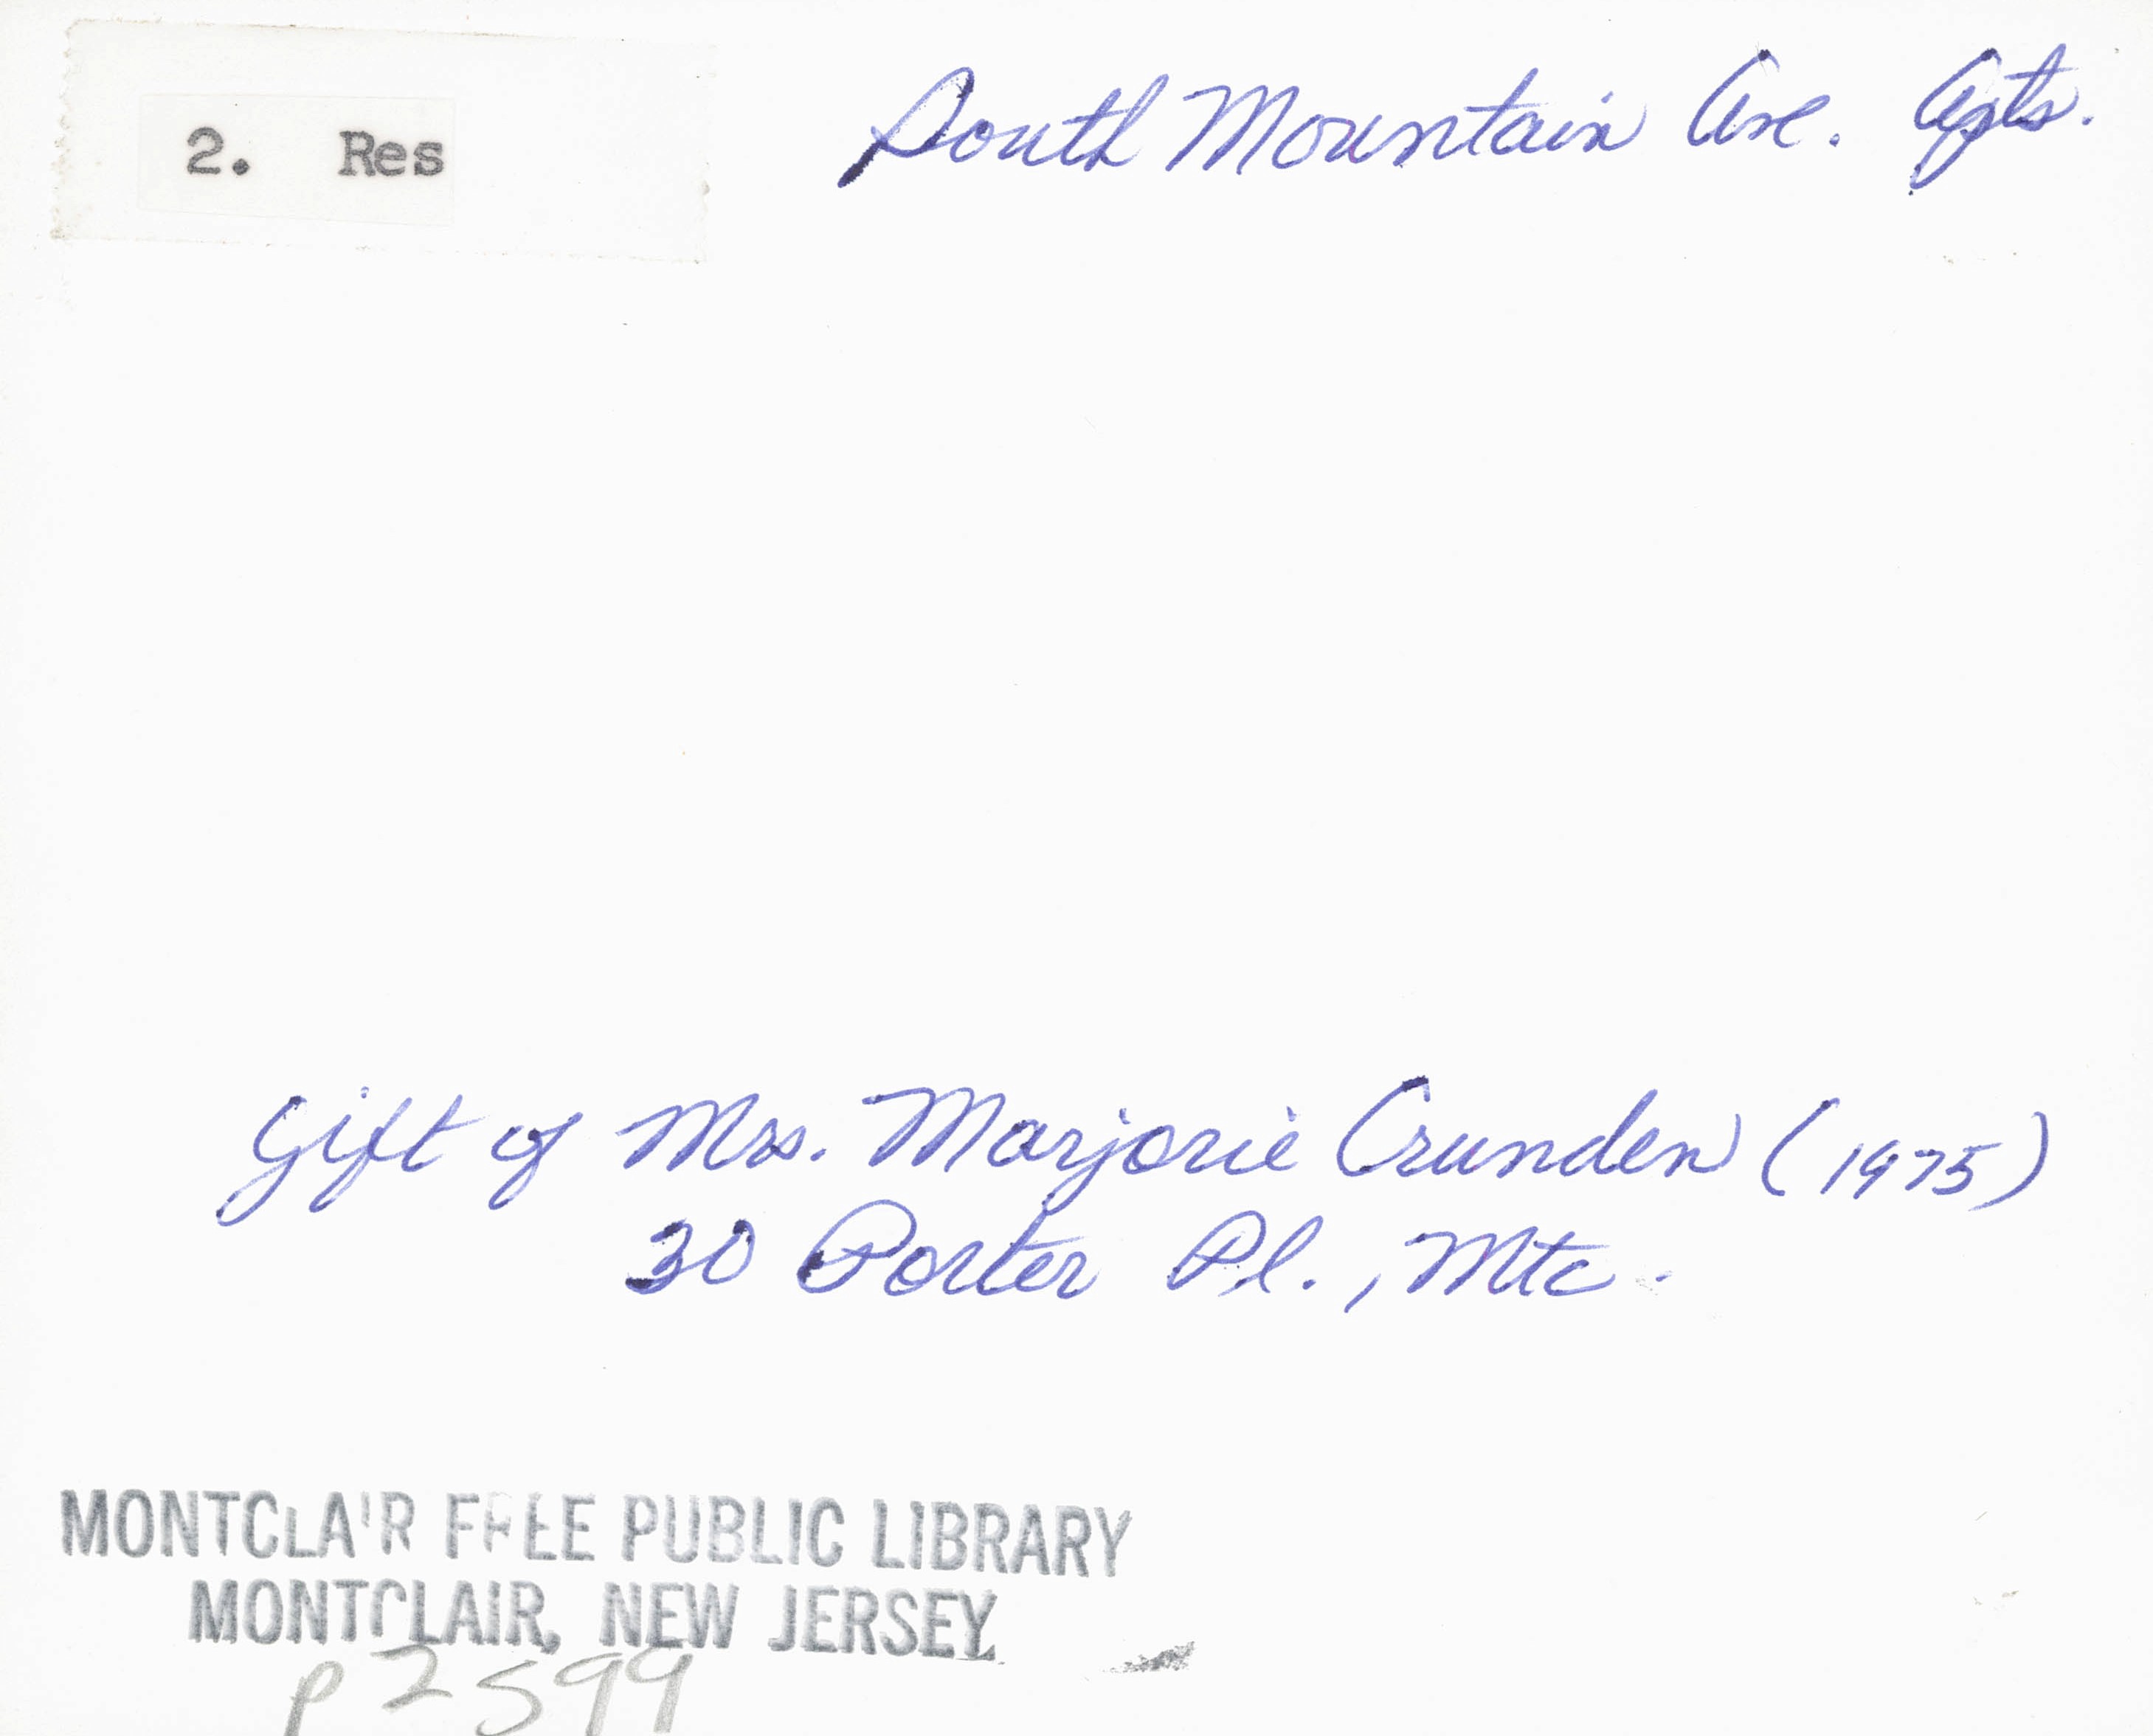 2. Res
South Mountain Ave. Apts.
Gift of Mrs. Marjorie Crunden (1975)
30 Porter Pl., Mtc.
MONTCLAIR FREE PUBLIC LIBRARY
MONTCLAIR, NEW JERSEY
P2599